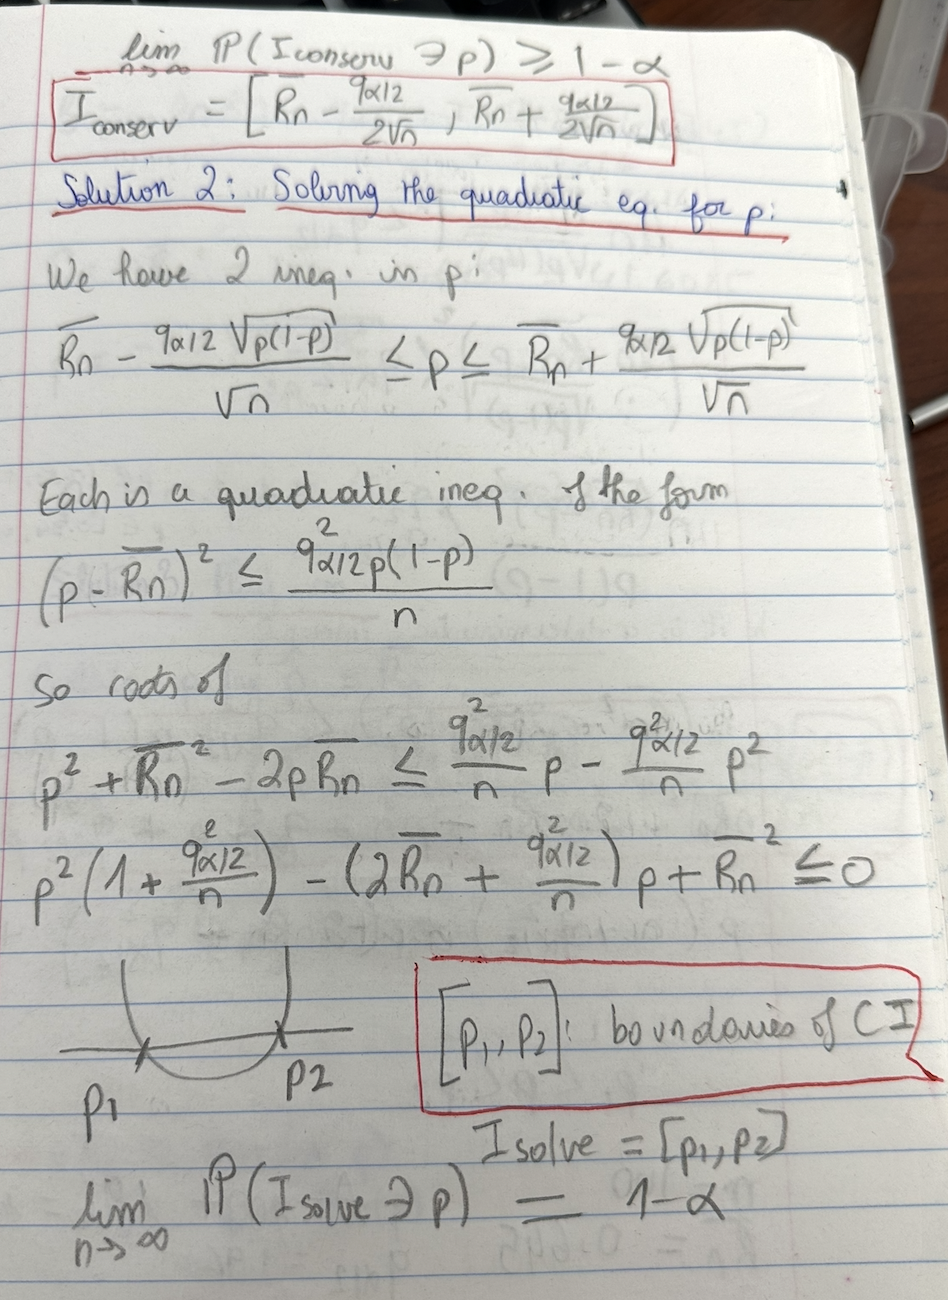 lim n→∞ ℙ(I conserv ∋ p) ≥ 1-α
I conserv = [R̄n - qα/2 / 2√n , R̄n + qα/2 / 2√n]
Solution 2: Solving the quadratic eq. for p:
We have 2 ineq. in p:
R̄n - qα/2 √p(1-p) / √n ≤ p ≤ R̄n + qα/2 √p(1-p) / √n
Each is a quadratic ineq. of the form
(p - R̄n)² ≤ q²α/2 p(1-p) / n
So roots of
p² + R̄n² - 2pR̄n ≤ q²α/2 / n p - q²α/2 / n p²
p²(1 + q²α/2 / n) - (2R̄n + q²α/2 / n) p + R̄n² ≤ 0
[p₁, p₂]: boundaries of CI
p₁ p2
I solve = [p₁, p₂]
lim n→∞ ℙ(I solve ∋ p) = 1-α